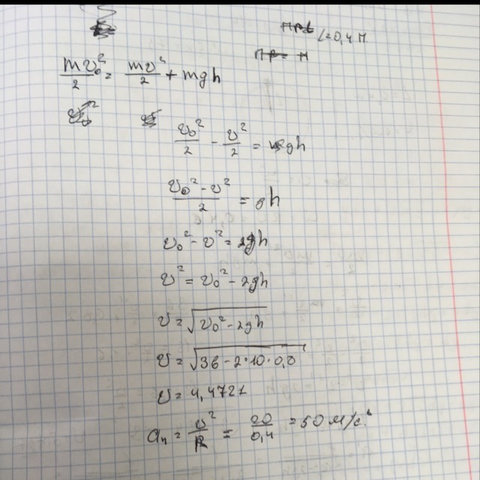 L=0,4 м
mv₀²/2 = mv²/2 + mgh
v₀²/2 - v²/2 = gh
v₀²-v²/2 = gh
v₀² - v² = 2gh
v² = v₀² - 2gh
v = √v₀² - 2gh
v = √36 - 2*10*0,8
v = 4,4721
aₙ = v²/R = 20/0,4 = 50 м/с²